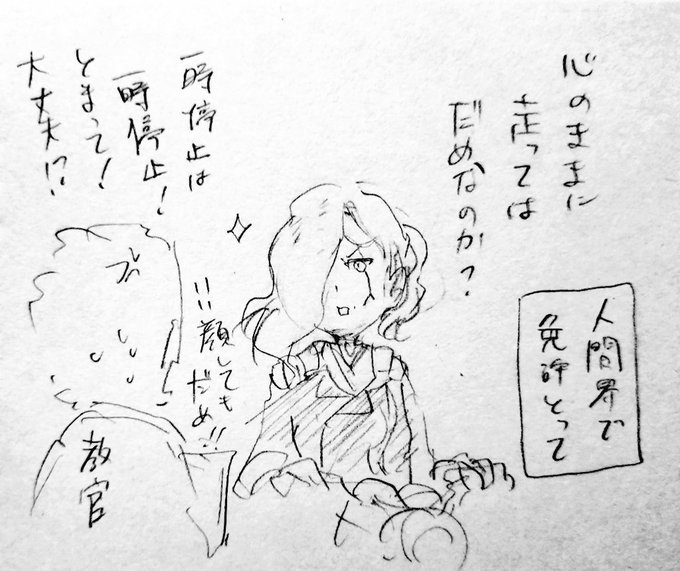 人間界で
免許とって
心のままに
走っては
だめなのか?
一時停止は
一時停止!
とまって!
大丈夫!?
いい顔しても
だめ!!
教官